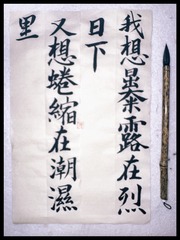 我想暴露在烈
日下
又想蜷縮在潮濕
里